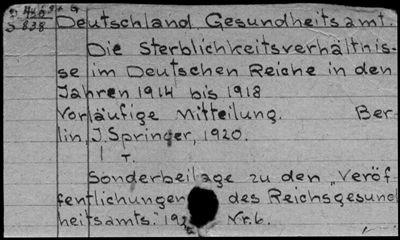 Deutschland Gesundheitsamt
838
Die Sterblichkeitsverhältnis-
se im Deutschen Reiche in den
Jahren 1914 bis 1918
Vorläufige Mitteilung. Ber-
lin, J. Springer, 1920.
1 T.
Sonderbeilage zu den "Veröf-
fentlichungen des Reichsgesund
heitsamts." Nr. 6.